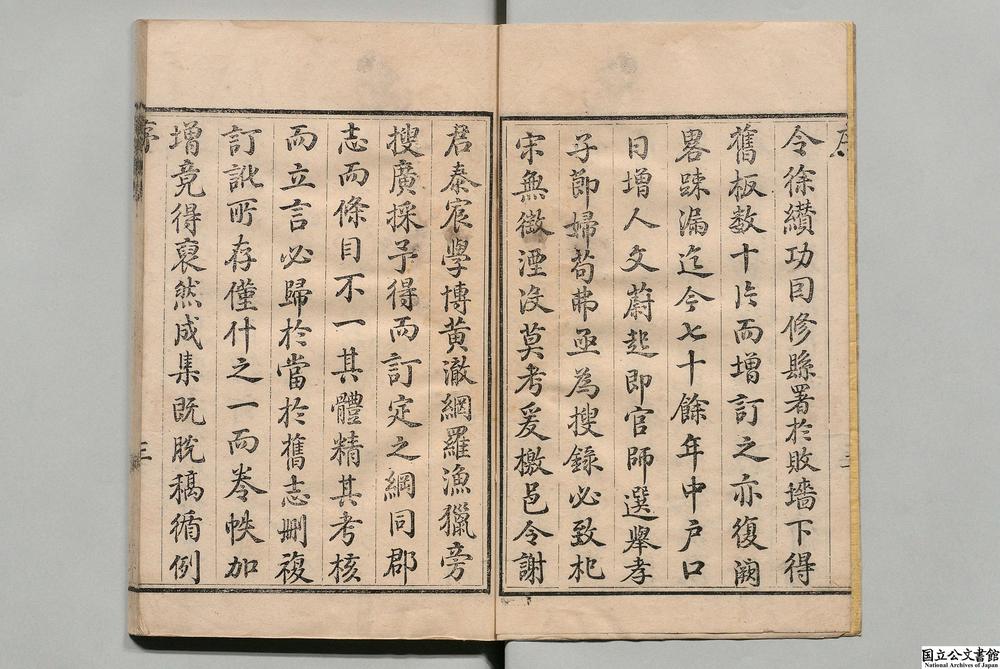 序
令徐纉功因修縣署於敗墻下得
舊板数十片而增訂之亦復闕
畧踈漏迄今七十餘年中戸口
日增人文蔚起即官師選舉孝
子節婦苟弗亟為搜錄必致杞
宋無徵湮没莫考爰檄邑令謝
君泰宸學博黄澈網羅漁獵旁
搜廣採予得而訂定之綱同郡
志而條目不一其體精其考核
而立言必歸於當於舊志刪複
訂訛所存僅什之一而卷帙加
增竟得裒然成集既脫稿循例
序
三
国立公文書館
National Archives of Japan